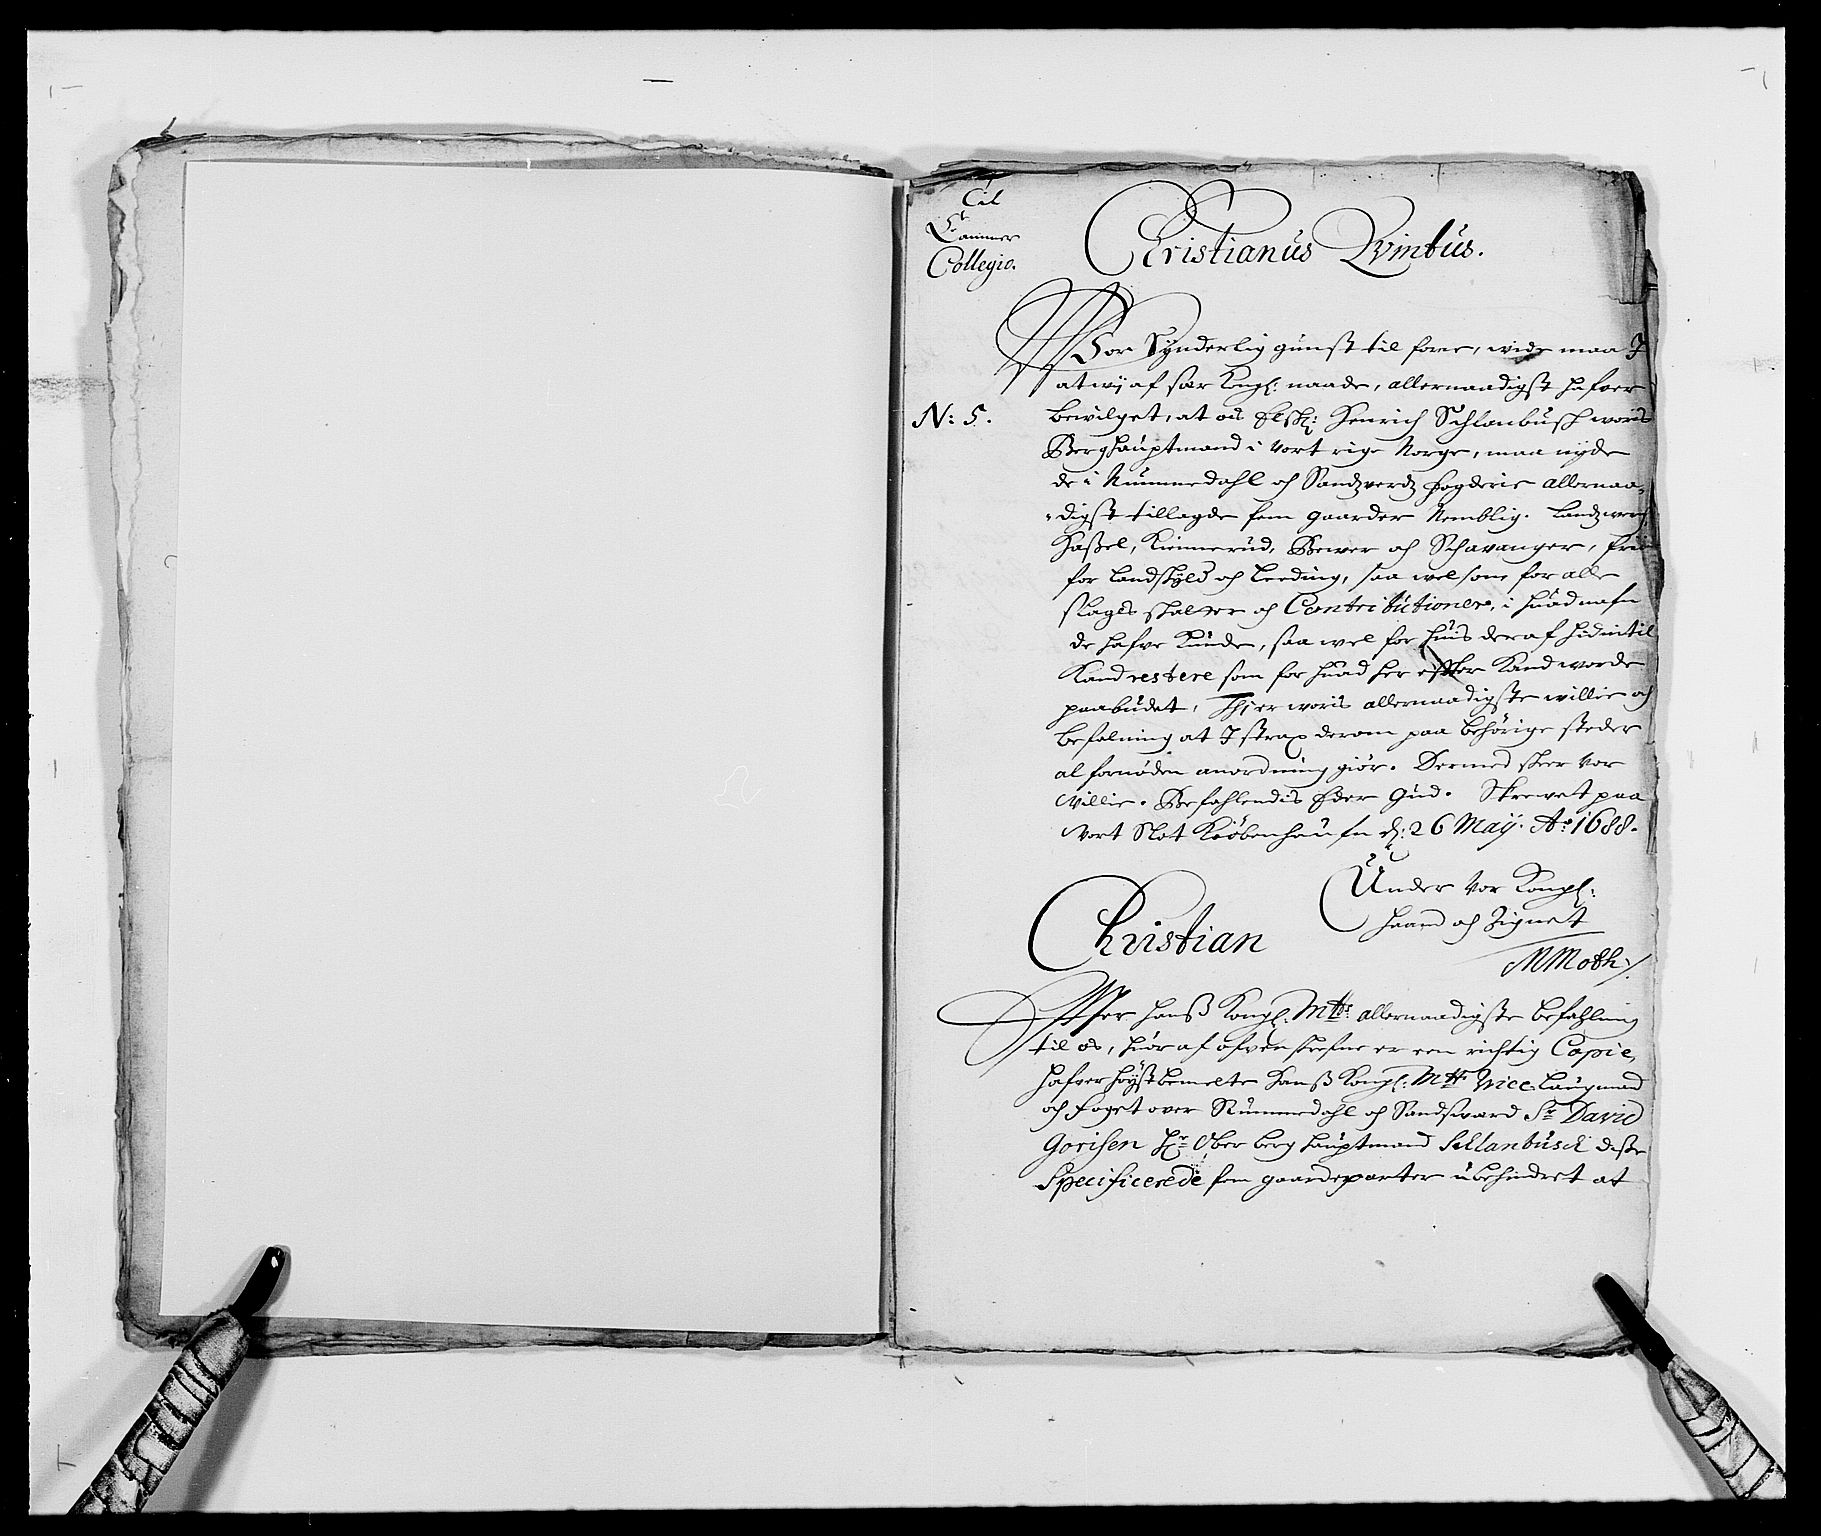 Til
Cammer
Collegio.
Christianus Qvintus.
Vor Synderlig gunst til forne, wide maa I
at wij af sær kongl: naade, allernaadigst hafver
N: 5.
bewilget, at os Elskl: Henrich Schlanbusch woris
Berghauptmand i vort rige Norge, maa nyde
de i Nummedahl och Sandzverdz fogderie allernaa-
-digst tillagde fem gaarder Nemblig.
Hassel, Kiennerud, Bewer och Schavanger, frie
for landskyld och leeding, saa wel som for alle
slags skatter och Contributioner, i huad nafn
de hafve kunde, saa wel for huis deraf hidintil
kand restere som for huad her effter kand worde
paabudet, Thi er woris allernaadigste willie och
befalning at I strax derom paa behörige steder
al fornöden anordning giör. Dermed skeer vor
willie. Befahlendis Eder Gud. Skrevet paa
vort Slot Kiöbenhaufn d: 26 Maij. Ao 1688.
Under vor kongl:
haand och Zignet
Christian
M Moth ./.
Effter hanß kongl: Mtts: allernaadigste befahling
til os, huor af ofvenskrefne er een richtig Copie,
hafver höystbemelte hanß kongl: Mtts Vice-laugmand
och foget over Nummedahl och Sandsvard Sr David
Gorisen Hr Ober berg hauptmand Schlanbusch disse
Specificerede fem gaardeparter ubehindret at